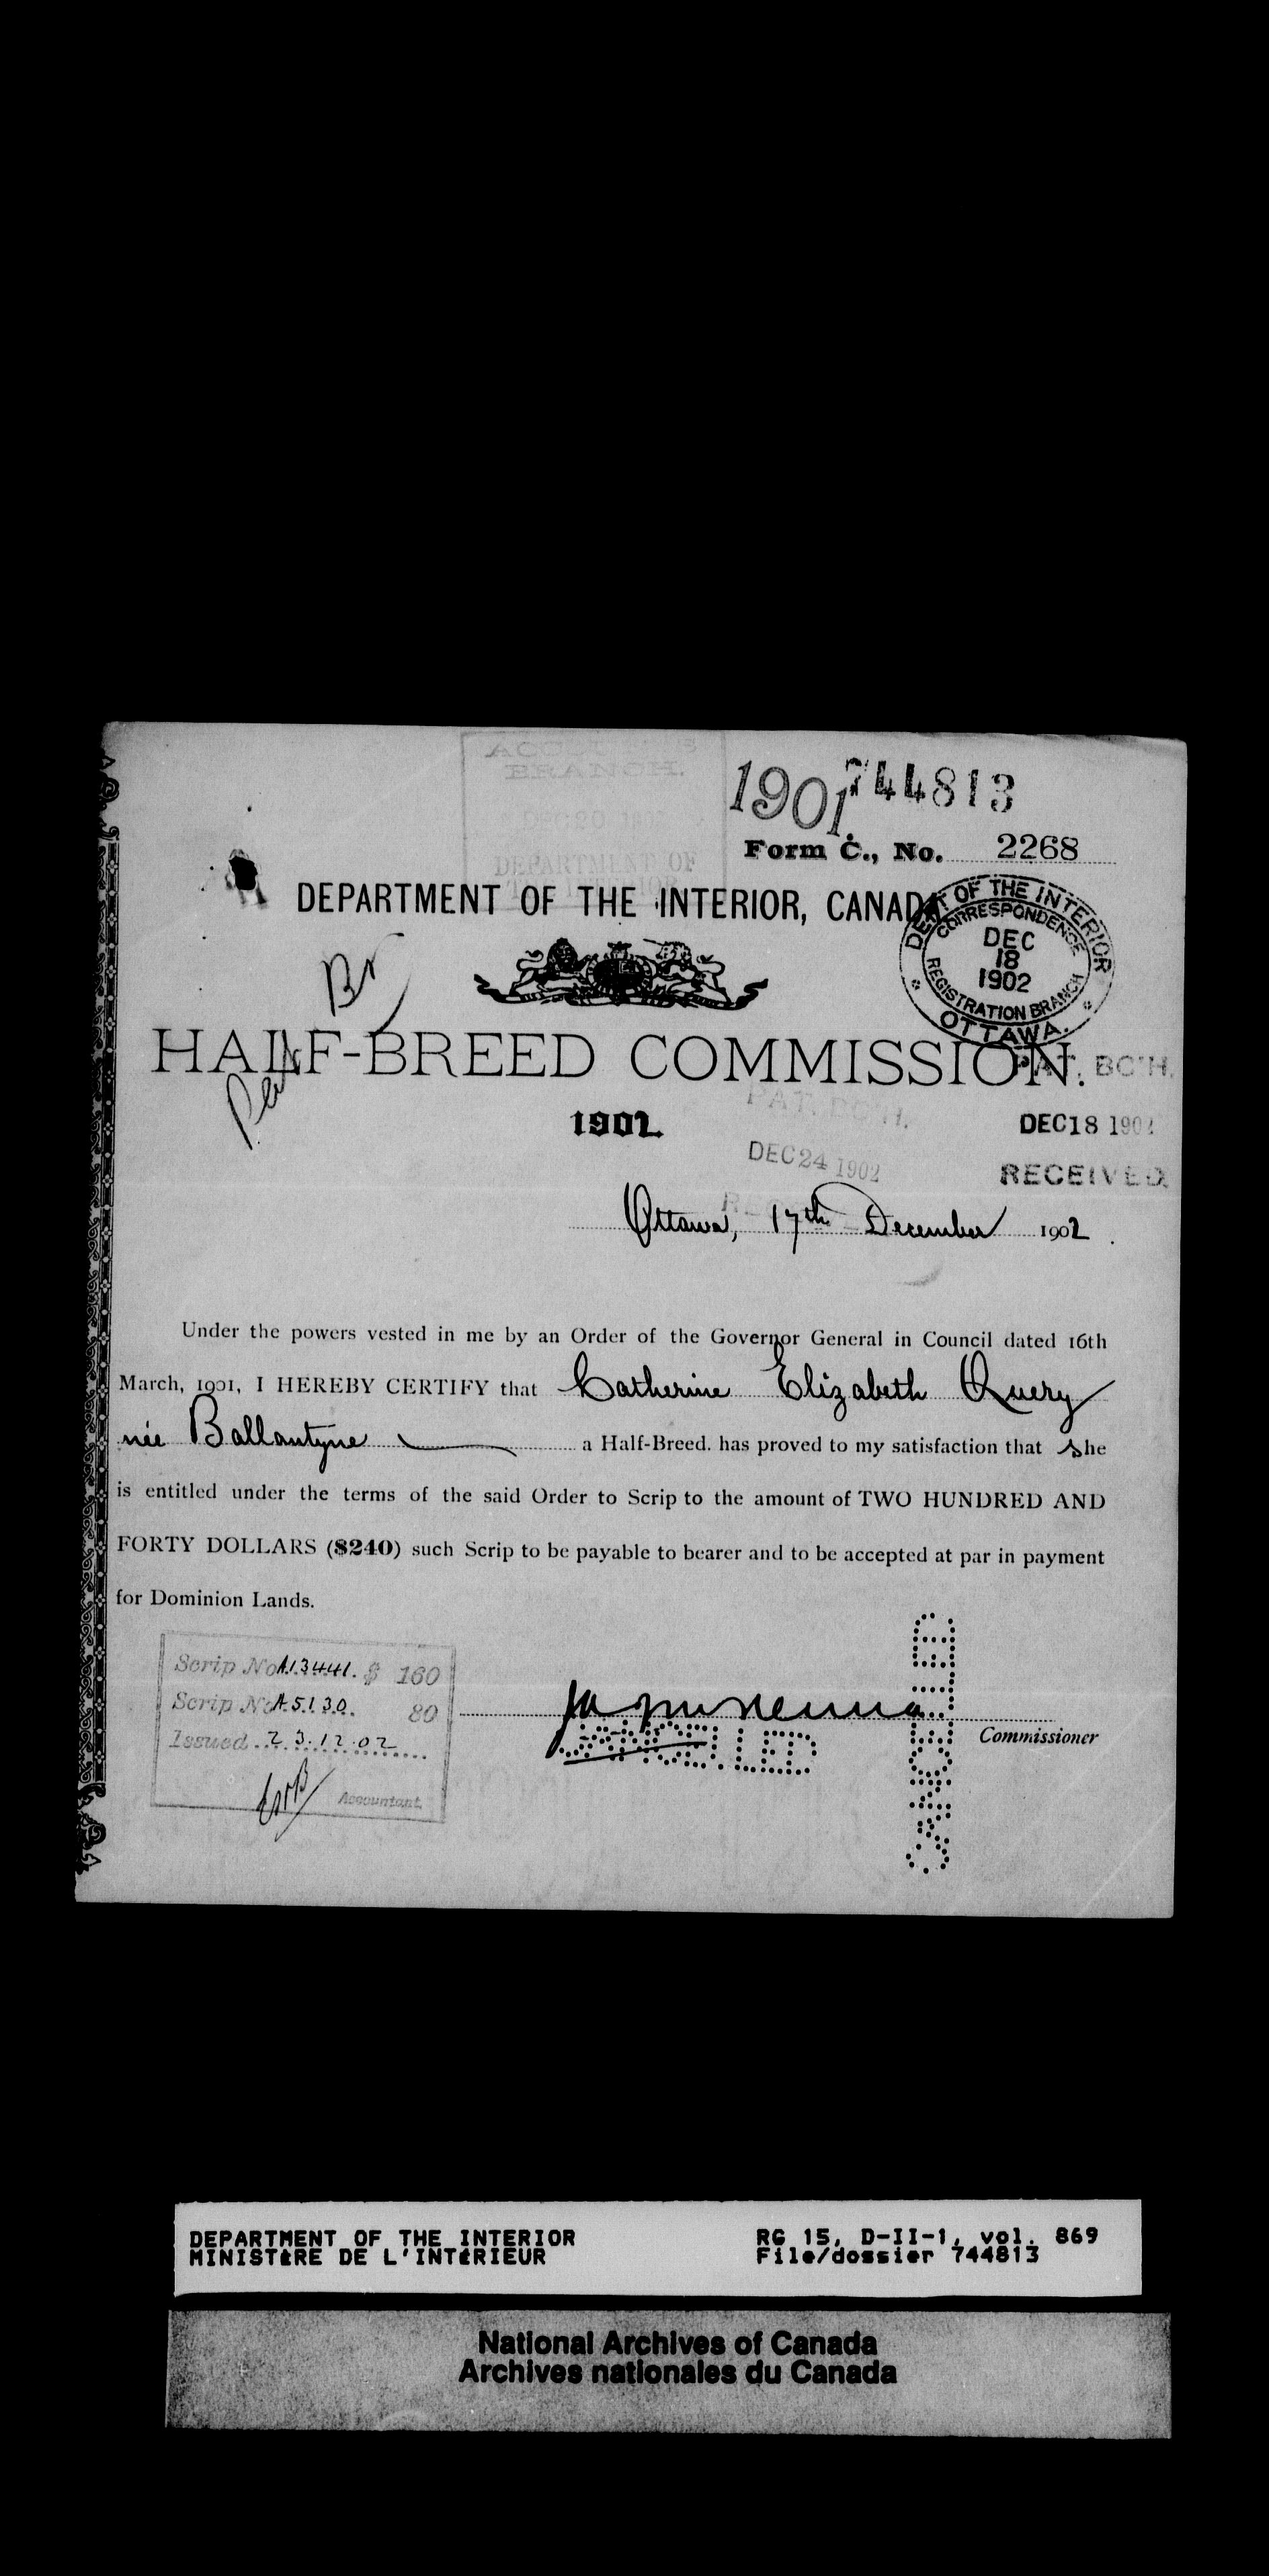 ACCOUNTANTS
BRANCH.
DEC 20 1902
DEPARTMENT OF
THE INTERIOR
1901 744813
Form C., No. 2268
DEPARTMENT OF THE INTERIOR, CANADA
DEPT OF THE INTERIOR
CORRESPONDENCE
DEC
18
1902
REGISTRATION BRANCH
OTTAWA.
Br
HALF-BREED COMMISSION.
PAT. BCH.
DEC 18 1902
RECEIVED
1902
PAT. BCH.
DEC 24 1902
Ottawa, 17th December 1902.
Under the powers vested in me by an Order of the Governor General in Council dated 16th
March, 1901, I HEREBY CERTIFY that Catherine Elizabeth Query
née Ballantyne a Half-Breed. has proved to my satisfaction that she
is entitled under the terms of the said Order to Scrip to the amount of TWO HUNDRED AND
FORTY DOLLARS ($240) such Scrip to be payable to bearer and to be accepted at par in payment
for Dominion Lands.
Scrip No A13441. $ 160
Scrip No A5130. 80
Issued 23.12.02
Accountant.
CANCELLED
CANCELLED
Commissioner
DEPARTMENT OF THE INTERIOR
MINISTÈRE DE L'INTÉRIEUR
RG 15, D-II-1, vol. 869
File/dossier 744813
National Archives of Canada
Archives nationales du Canada